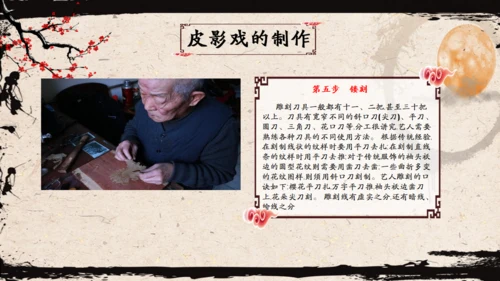 皮影戏的制作
第五步 镂刻
雕刻刀具一般都有十一、二把甚至三十把
以上。刀具有宽窄不同的斜口刀(尖刀)、平刀、
圆刀、三角刀、花口刀等分工很讲究艺人需要
熟练各种刀具的不同使用方法。 根据传统经验
在刻制线状的纹样时要用平刀去扎;在刻制直线
条的纹样时用平刀去推;对于传统服饰的袖头袄
边的圆型花纹则需要用凿刀去凿;一些曲折多变
的花纹图样,则须用斜口刀刻制。艺人雕刻的口
诀如下:樱花平刀扎万字平刀推袖头袄边凿刀
上,花朵尖刀刻。 雕刻线有虚实之分,还有暗线、
绘线之分